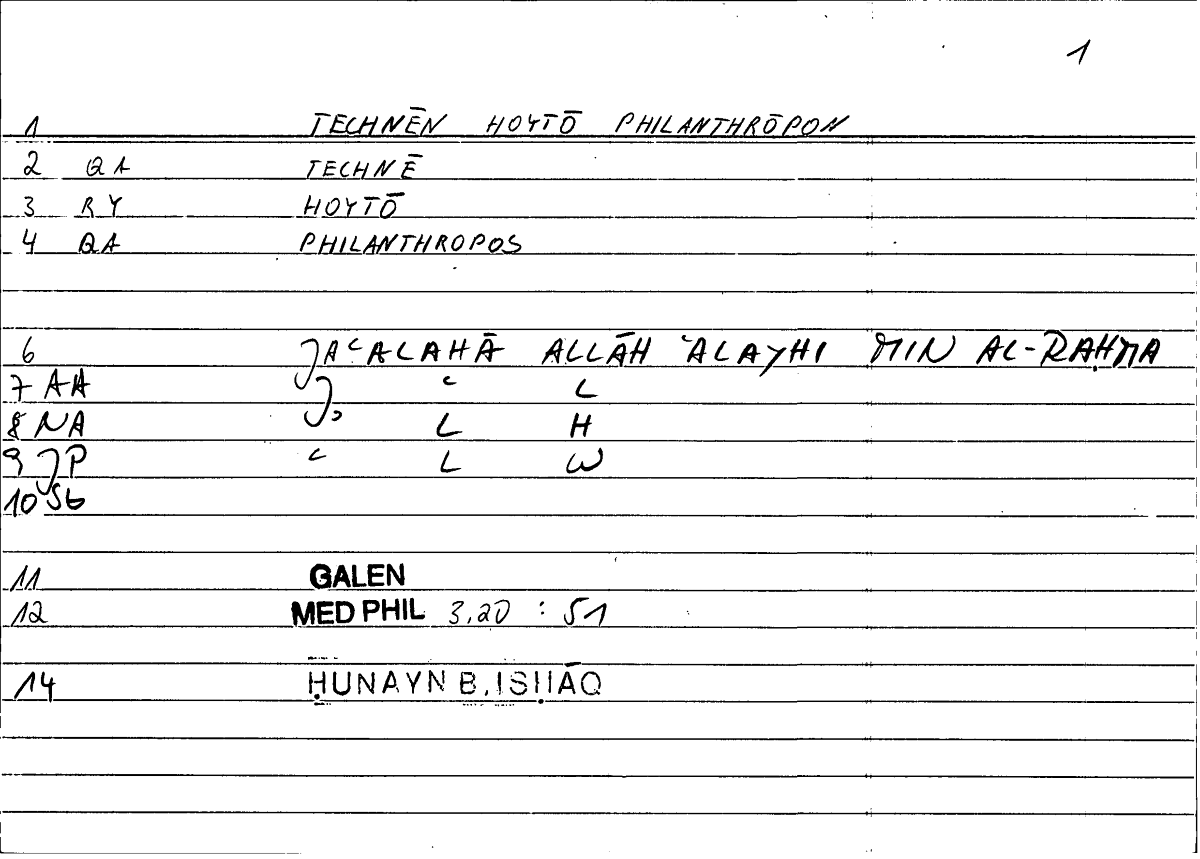 1
1 TECHNĒN HOYTŌ PHILANTHRŌPON
2 QA TECHNĒ
3 RY HOYTŌ
4 QA PHILANTHROPOS
6 JAʿALAHĀ ALLĀH ʿALAYHI MIN AL-RAḤMA
7 AA J ʿ L
8 NA ʾ L H
9 JP ʿ L W
10 Sb
11 GALEN
12 MED PHIL 3,20 : 51
14 ḤUNAYN B. ISḤĀQ